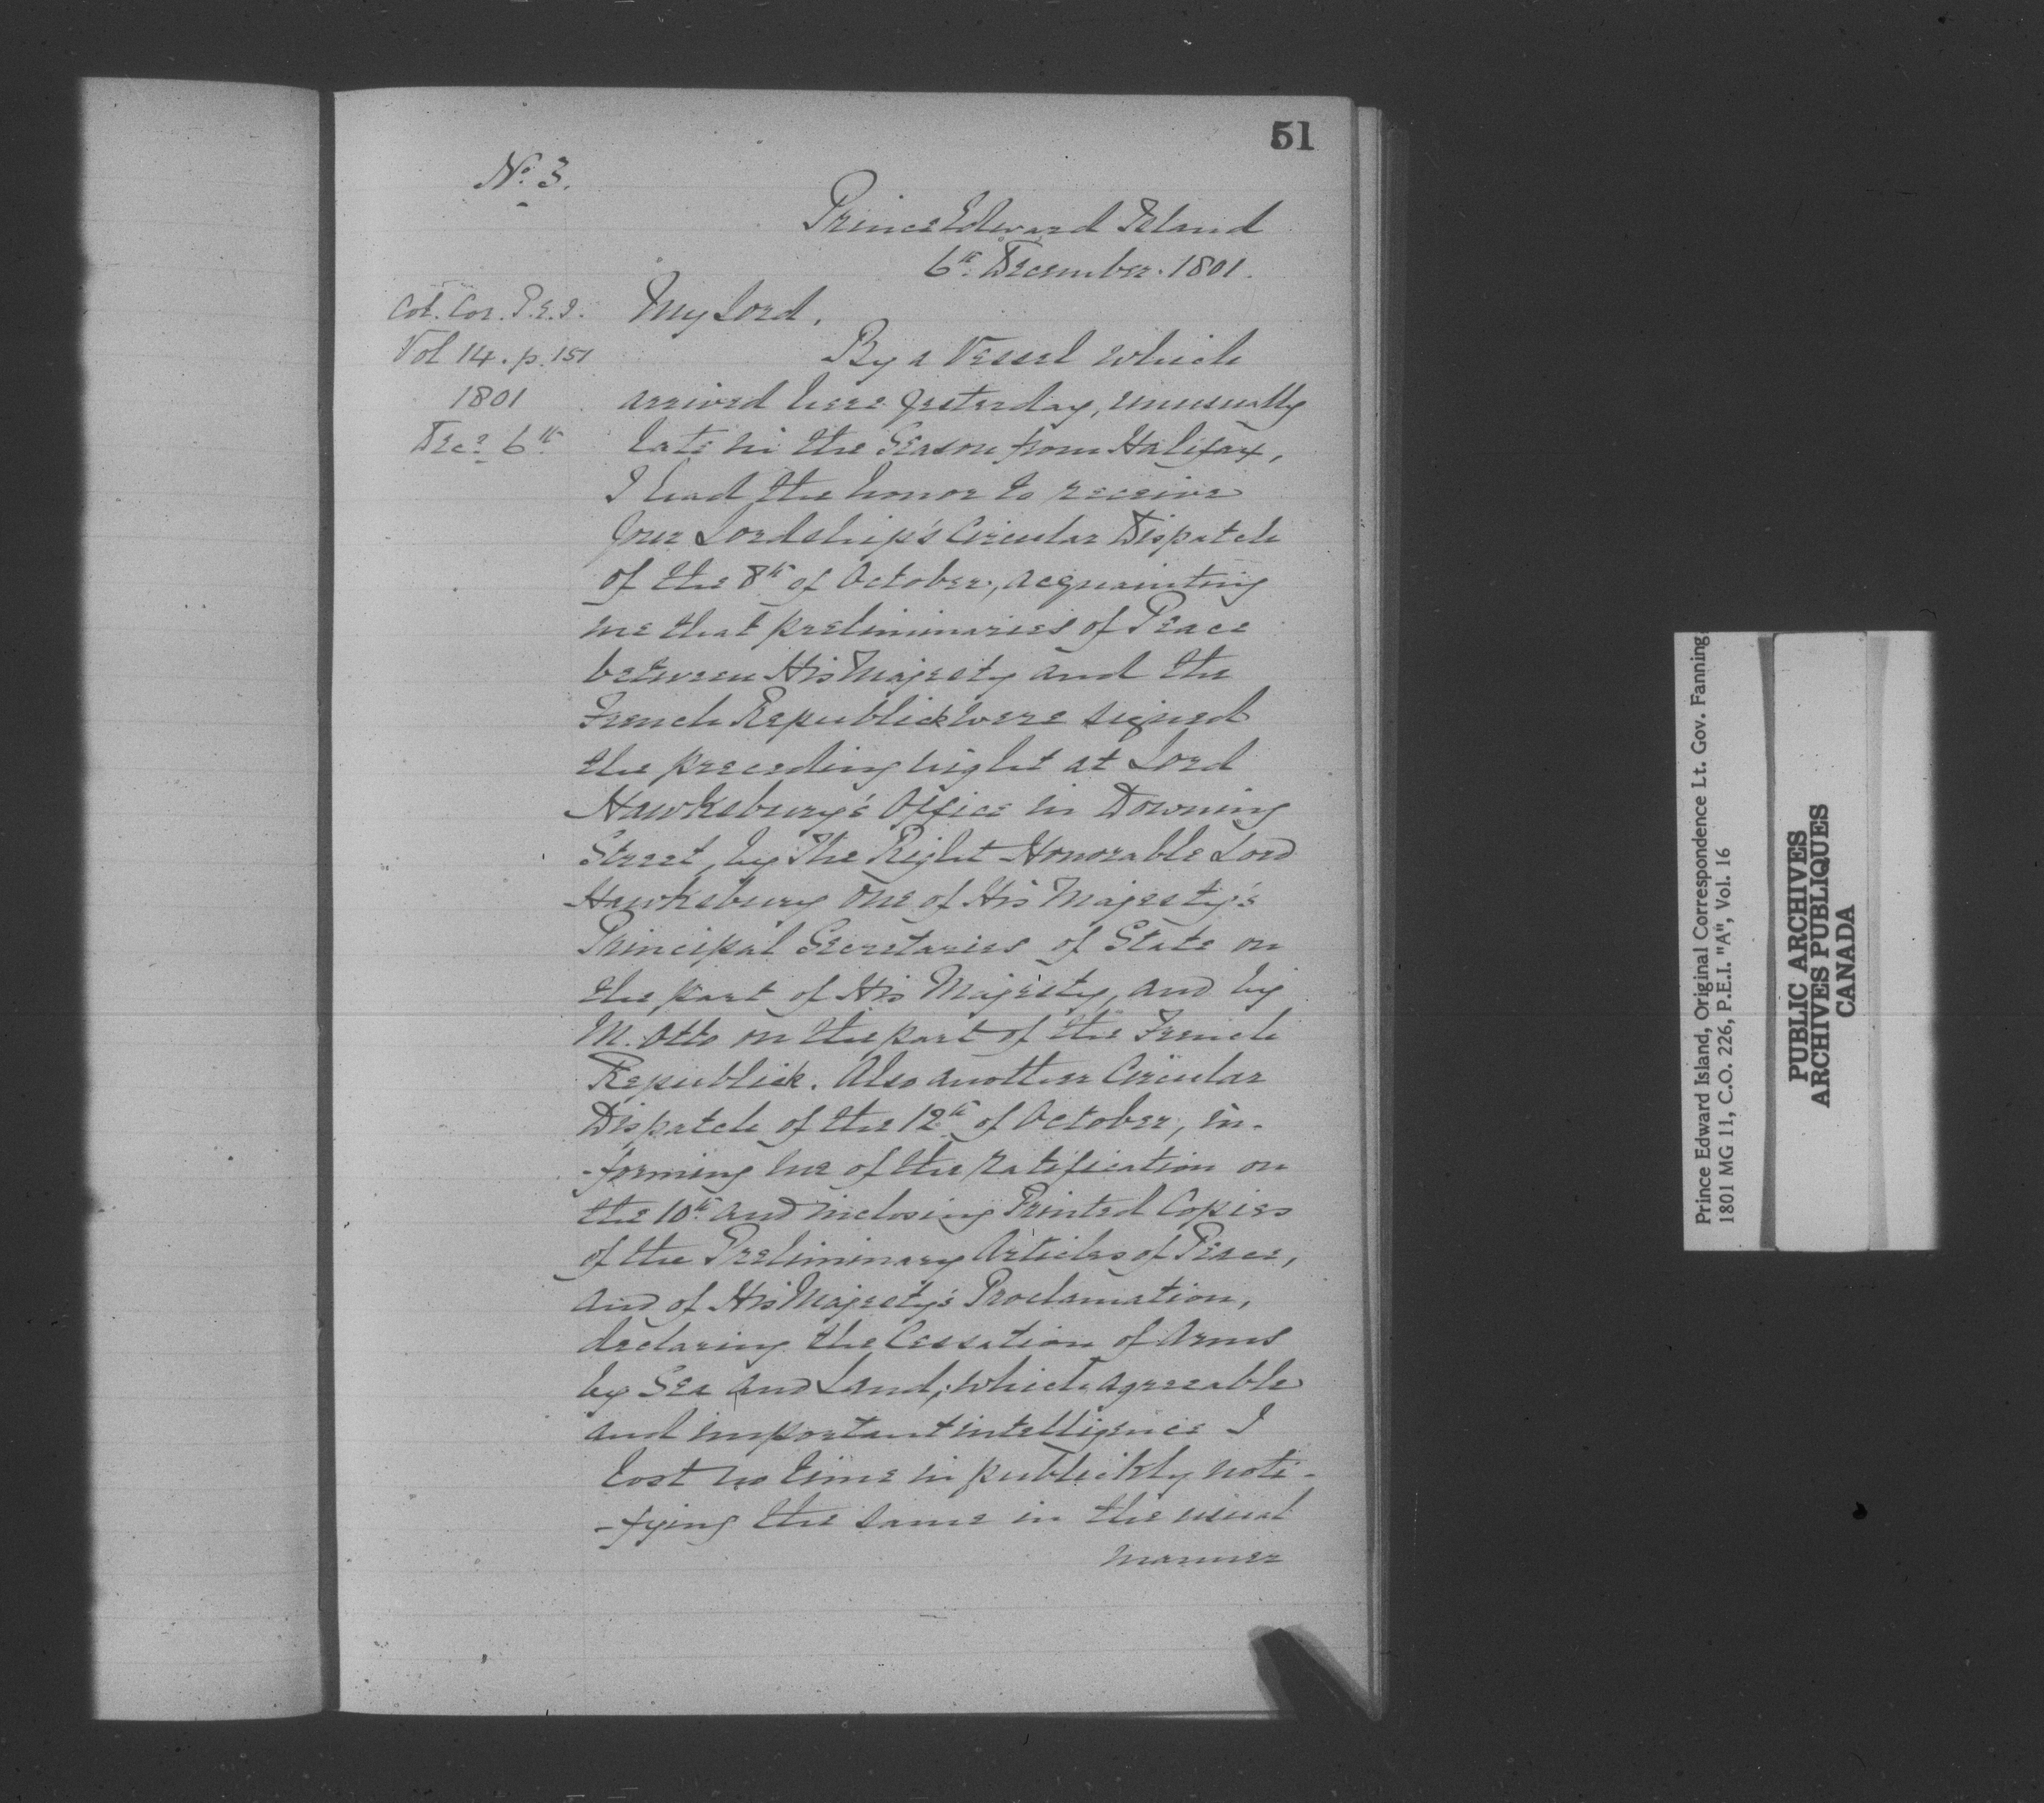 51
No. 3.
Prince Edward Island
6th December. 1801.
Col. Cor. P.E.I.
Vol 14. p. 151
1801
Decr 6th
My Lord,
By a Vessel which
arrived here yesterday, unusually
late in the Season from Halifax,
I had the honor to receive
your Lordship's Circular Dispatch
of the 8th of October, acquainting
me that preliminaries of Peace
between His Majesty and the
French Republick were signed
the preceding night at Lord
Hawksbury's Office in Downing
Street, by The Right Honorable Lord
Hawksbury one of His Majesty's
Principal Secretaries of State on
the part of His Majesty, and by
M. Otto on the part of the French
Republick. Also another Circular
Dispatch of the 12th of October, in-
-forming me of the ratification on
the 10th and inclosing Printed Copies
of the Preliminary Articles of Peace,
and of His Majesty's Proclamation,
declaring the Cessation of Arms
by Sea and Land; which agreeable
and important intelligence I
lost no time in publickly noti-
-fying the same in the usual
manner
Prince Edward Island, Original Correspondence Lt. Gov. Fanning
1801 MG 11, C.O. 226, P.E.I. "A", Vol. 16
PUBLIC ARCHIVES
ARCHIVES PUBLIQUES
CANADA